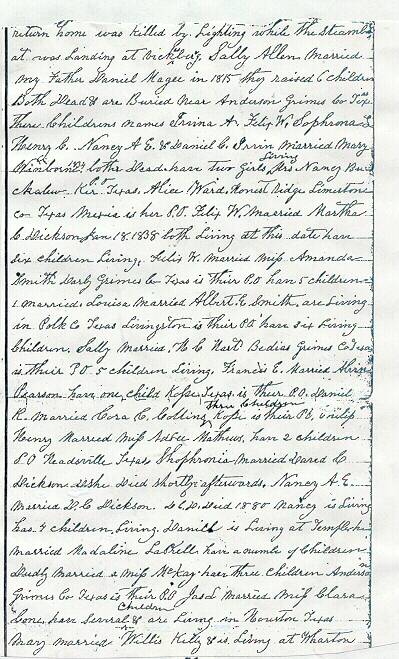 return home was killed by. Lighting while the steamb
at. was Landing at Vicksburg, Sally Allen Married
my Father Daniel Magee in 1815 they raised 6 children
Both Dead & are Buried Near Anderson Grimes Co Tex
There Childrens names Irvina A. Felix W, Sophrona L
Henry C. Nancy A E. & Daniel C. Irvin married Mary
both Dead. have two Girls, Living Mrs Nancy
Texas. Alice Ward. Honest Ridge Limestone
co Texas Mexia is her P.O. Felix W. Married Martha
C Dickson Jan 18. 1838 both Living at this date have
six children Living. Felix W. married miss Amanda
Smith Darby Grimes Co Texas is Their P.O have 5 children
1 married. Louisa Married Albert E Smith, are Living
in Polk Co Texas Livingston is their P.O. have six Living
Children. Sally Married, W C Hart. Bedias Grimes Co Texas
is Their P.O. 5 children Living, Francis E. Married
Pearson have one, child Kosse, Texas. is Their P.O. Daniel
R. Married Cora C. Collins three Children Kosse is their PO,
Henry Married miss Addee Mathews, han 2 children
P O Headsville Texas Shophronia married David C
Dickson she Died shortly afterwards, Nancy A E.
Married D. C Dickson. D C. D. Died 1880 Nancy is Living
has 4 Children Living. Daniel is Living at Temple. he
married Madaline have a number of Children
Dudly Married a miss McKay. haes three Children Anderson
Grimes Co Texas is their P.O Jas L Married miss Clara
Cone, have several Children & are Living in Houston Texas
Mary married Willis & is Living at Wharton